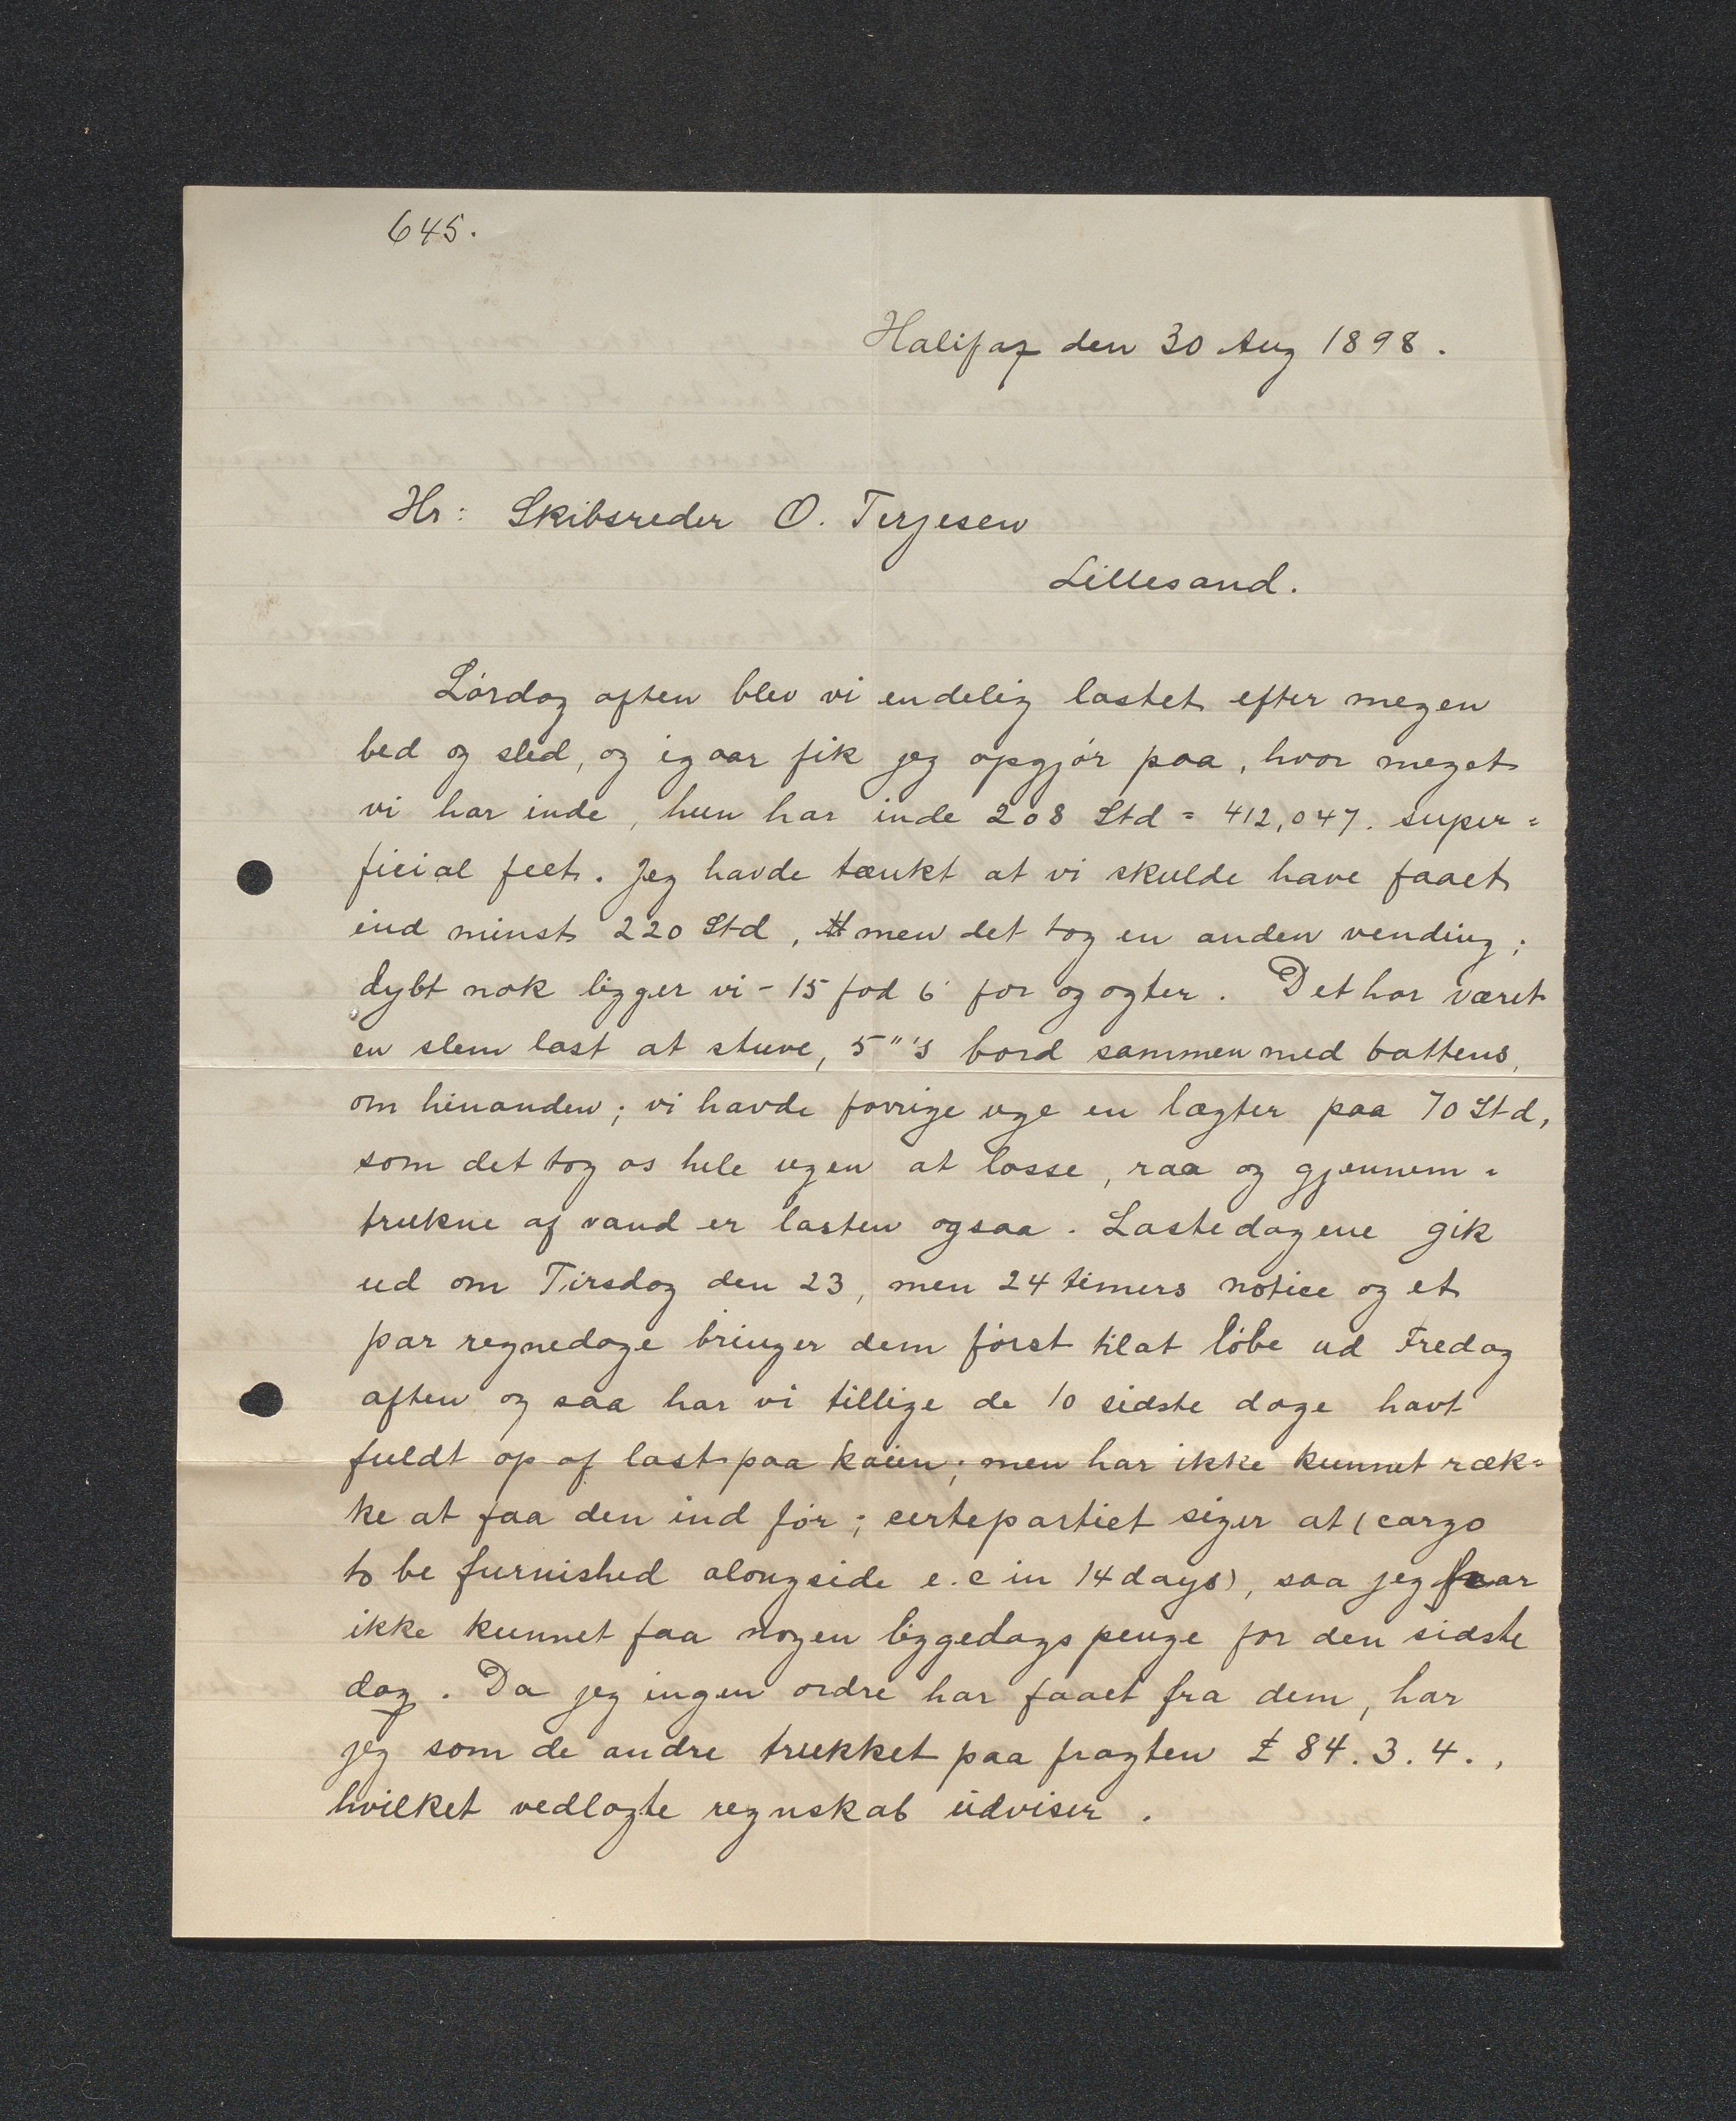 645.
Halifax den 30 Aug 1898.
Hr: Skibsreder O. Terjesen
Lillesand.
Lördag aften blev vi endelig lastet efter megen
bed og sled, og igaar fik jeg opgjör paa, hvor meget
vi har inde, hun har inde 208 Std = 412,047. super=
ficial feet. Jeg havde tænkt at vi skulde have faaet
ind minst 220 Std, men det tog en anden vending;
dybt nok ligger vi - 15 fod 6' for og agter. Det har været
en slem last at stuve, 5"'s bord sammen med battens,
om hinanden; vi havde forrige uge en lægter paa 70 Std,
som det tog os hele ugen at losse, raa og gjennem=
trukne af vand er lasten ogsaa. Lastedagene gik
ud om Tirsdag den 23, men 24 timers notice og et
par regnedage bringer dem först til at löbe ud Fredag
aften og saa har vi tillige de 10 sidste dage havt
fuldt op af last paa kaien; men har ikke kunnet ræk=
ke at faa den ind för; certepartiet siger at (cargo
to be furnished alongside e.c in 14 days), saa jeg har
ikke kunnet faa nogen liggedagspenge for den sidste
dag. Da jeg ingen ordre har faaet fra dem, har
jeg som de andre trukket paa fragten £ 84.3.4.,
hvilket vedlagte regnskab udviser.